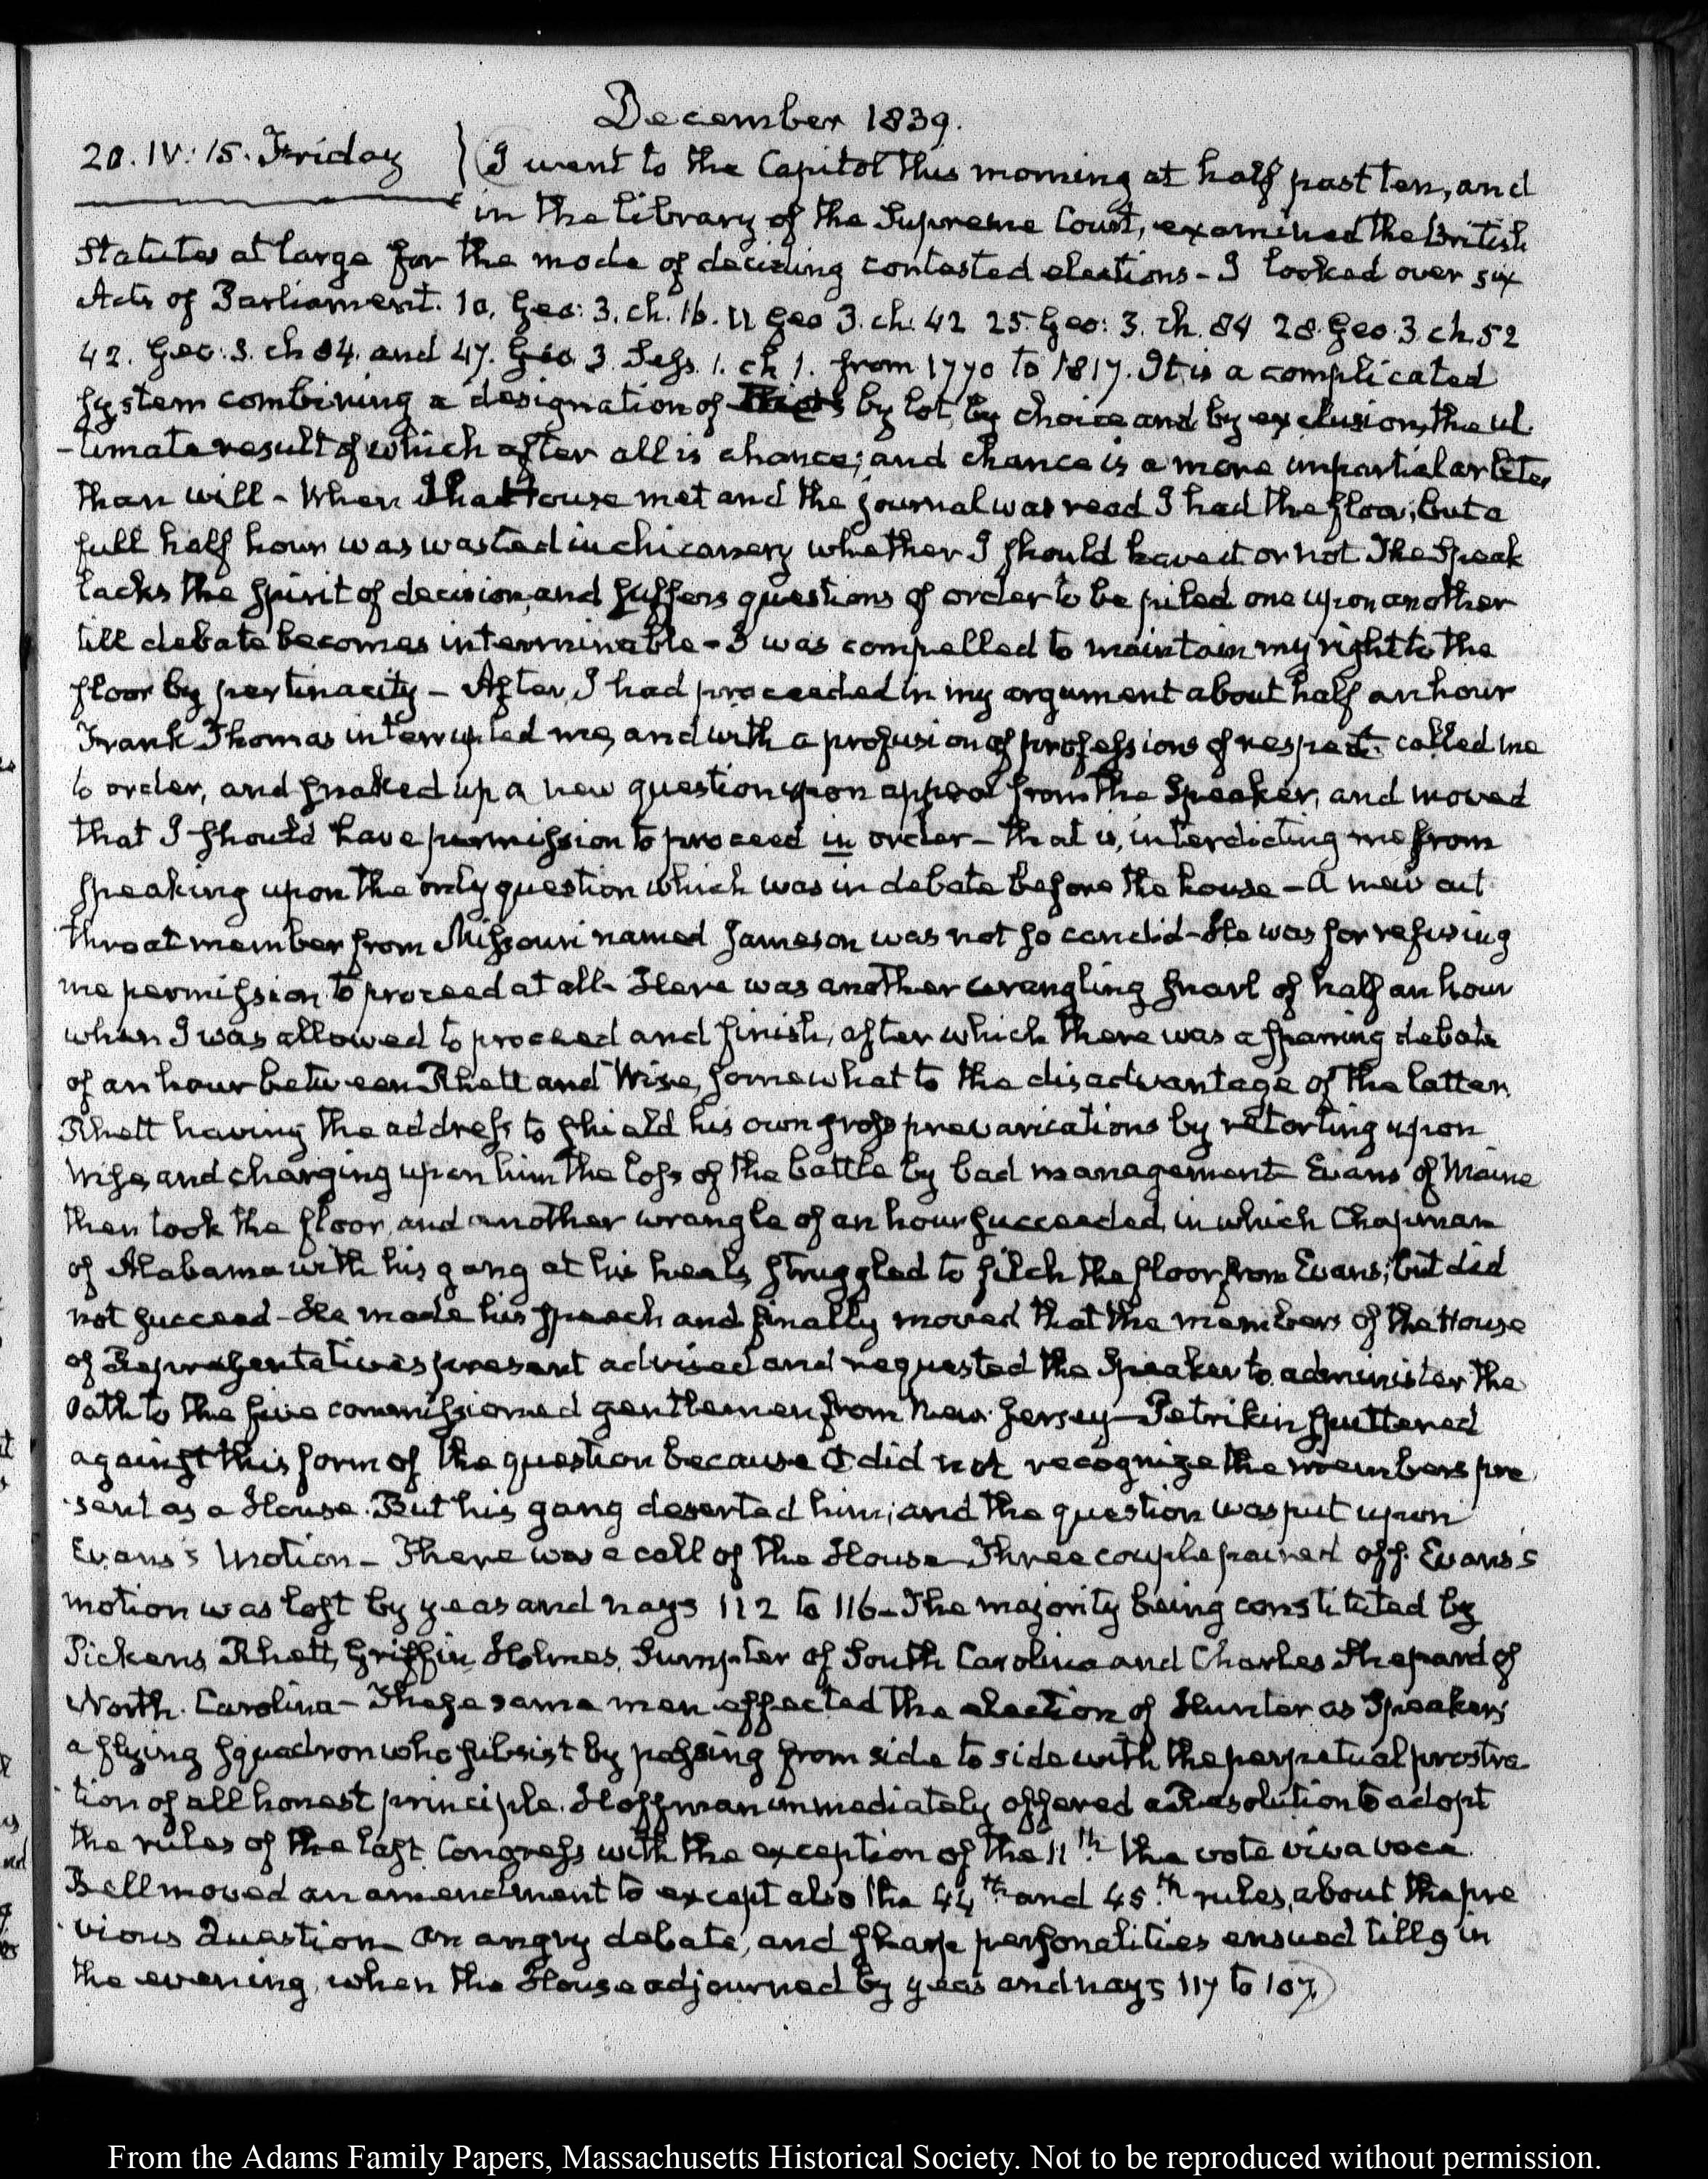 December 1839.
20. IV: 15. Friday } I went to the Capitol this morning at half past ten, and
in the library of the Supreme Court, examined the British
Statutes at large for the mode of deciding contested elections - I looked over six
Acts of Parliament. 10. Geo: 3. ch. 16. 11 Geo 3. ch. 42 25. Geo: 3. ch. 84 28. Geo. 3. ch. 52
42. Geo: 3. ch 84. and 47. Geo 3. Sess. 1. ch 1. from 1770 to 1817. It is a complicated
system combining a designation of by lot, by choice and by exclusion, the ul-
-timate result of which after all is chance; and chance is a more impartial arbiter
than will - When the House met and the journal was read I had the floor; but a
full half hour was wasted in chicanery whether I should have it or not The Speak
lacks the spirit of decision, and suffers questions of order to be piled one upon another
till debate becomes interminable - I was compelled to maintain my right to the
floor by pertinacity - After, I had proceeded in my argument about half an hour
Frank Thomas interrupted me, and with a profusion of professions of respect called me
to order, and snaked up a new question upon appeal from the Speaker, and moved
that I should have permission to proceed in order - that is, interdicting me from
speaking upon the only question which was in debate before the house - A new cut
throat member from Missouri named Jameson was not so candid - He was for refusing
me permission to proceed at all - Here was another wrangling snarl of half an hour
when I was allowed to proceed and finish, after which there was a sparring debate
of an hour between Rhett and Wise, somewhat to the disadvantage of the latter,
Rhett having the address to shield his own gross prevarications by retorting upon
Wise, and charging upon him the loss of the battle by bad management - Evans of Maine
then took the floor, and another wrangle of an hour succeeded, in which Chapman
of Alabama with his gang at his heels, struggled to filch the floor from Evans; but did
not succeed - He made his speech and finally moved that the members of the House
of Representatives present advised and requested the Speaker to administer the
oath to the five commissioned gentlemen from New Jersey - Petrikin sputtered
against this form of the question because it did not recognize the members pre
sent as a House. But his gang deserted him; and the question was put upon
Evans's motion - There was a call of the House - Three couple paired off. Evans's
motion was lost by yeas and nays 112 to 116 - The majority being constituted by
Pickens, Rhett, Griffin, Holmes, Sumpter of South Carolina and Charles Shepard of
North Carolina - These same men effected the election of Hunter as Speaker;
a flying squadron who subsist by passing from side to side with the perpetual prostra-
tion of all honest principle. Hoffman immediately offered a Resolution to adopt
the rules of the last Congress with the exception of the 11th the vote viva voce.
Bell moved an amendment to except also the 44th and 45th rules, about the pre
vious Question - An angry debate, and sharp personalities ensued till 9 in
the evening, when the House adjourned by yeas and nays 117 to 107.
From the Adams Family Papers, Massachusetts Historical Society. Not to be reproduced without permission.